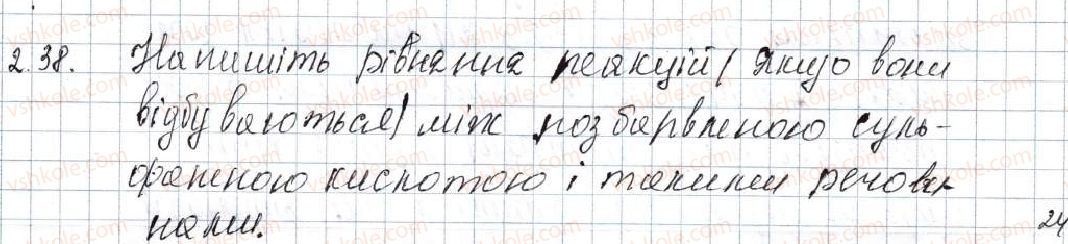 2.38. Напишіть рівняння реакцій (якщо вони
відбуваються) між розбарвленою суль-
фатною кислотою і такими речови
нами.
24